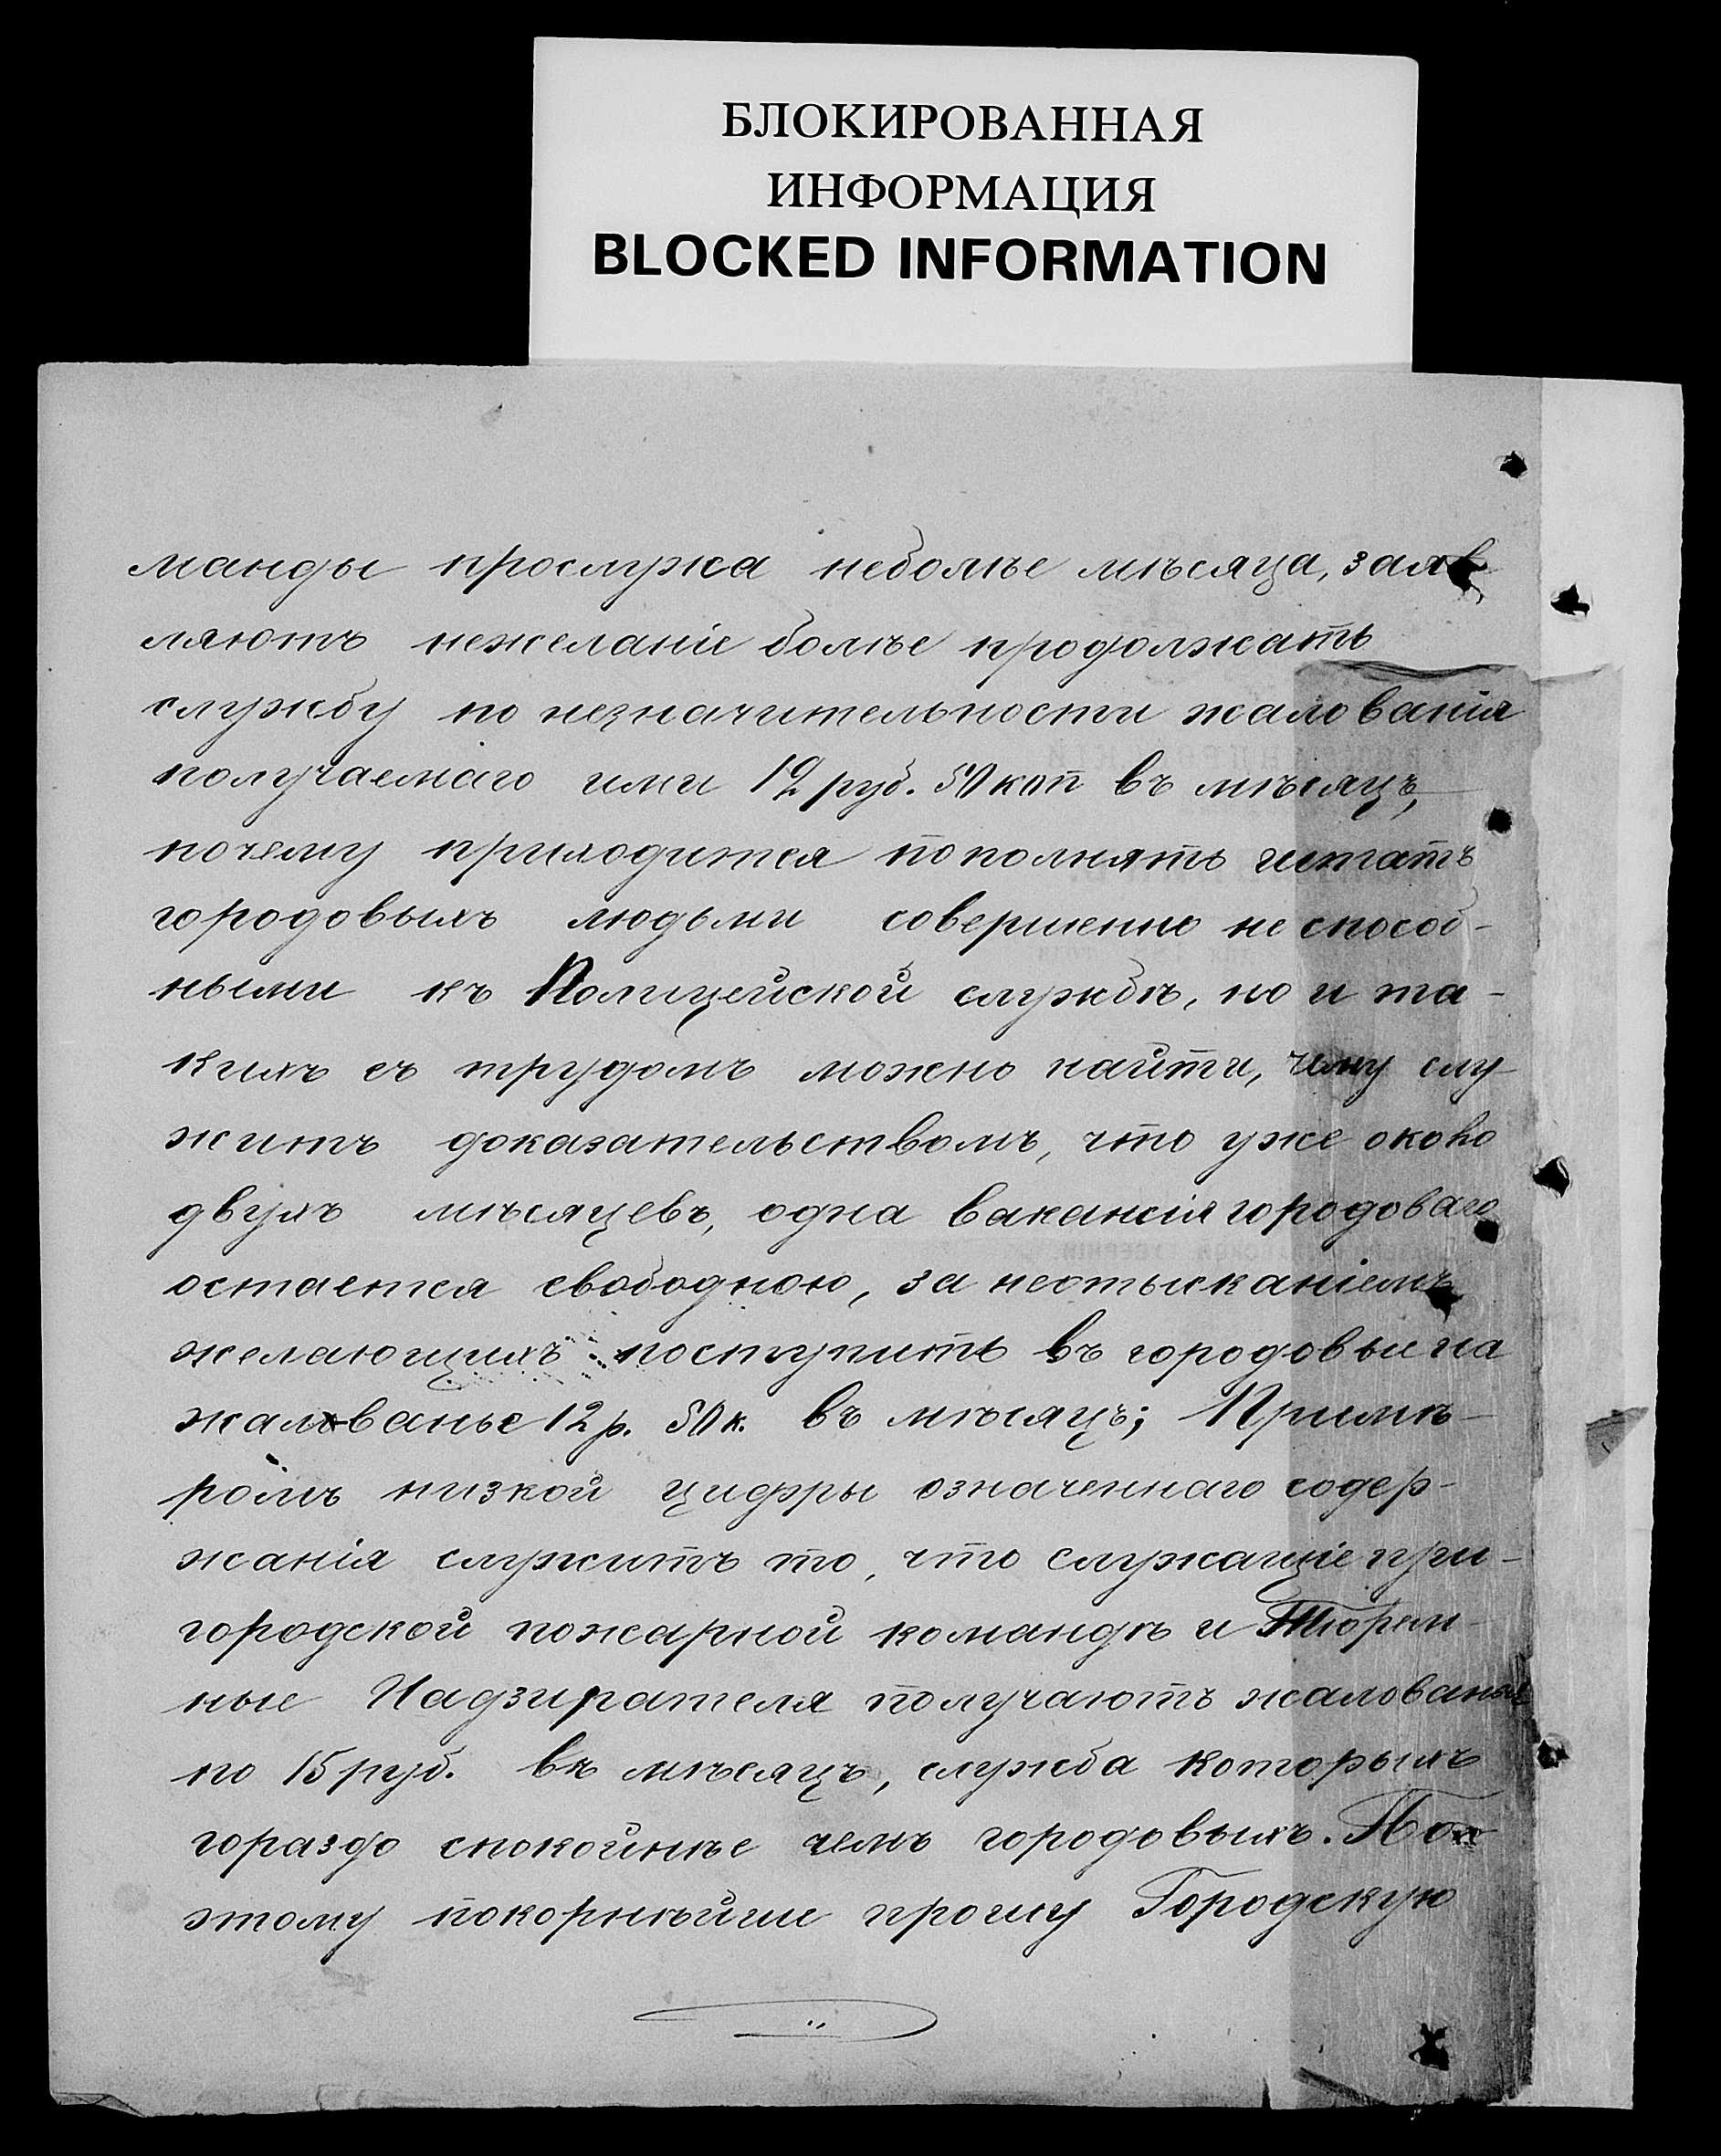 БЛОКИРОВАННАЯ
ИНФОРМАЦИЯ
BLOCKED INFORMATION
манды прослужа неболѣе мѣсяца, заяв
ляютъ нежеланіе болѣе продолжать
службу по незначительности жалованія
получаемаго ими 12 руб. 50 коп въ мѣсяцъ,
почему приходится пополнять штатъ
городовыхъ людьми совершенно не способ-
ными къ Полицейской службѣ, но и та-
кихъ съ трудомъ можно найти, чему слу-
житъ доказательствомъ, что уже около
двухъ мѣсяцевъ, одна вакансія городоваго
остается свободною, за неотысканіемъ
желающихъ поступить въ городовые на
жалованье 12 р. 50 к. въ мѣсяцъ; Примѣ-
ромъ низкой цифры означеннаго содер-
жанія служитъ то, что служащіе при-
городской пожарной командѣ и Тюрем-
ные Надзирателя получаютъ жалованья
по 15 руб. въ мѣсяцъ, служба которыхъ
гораздо спокойнѣе чемъ городовыхъ. По
этому покорнѣйше прошу Городскую